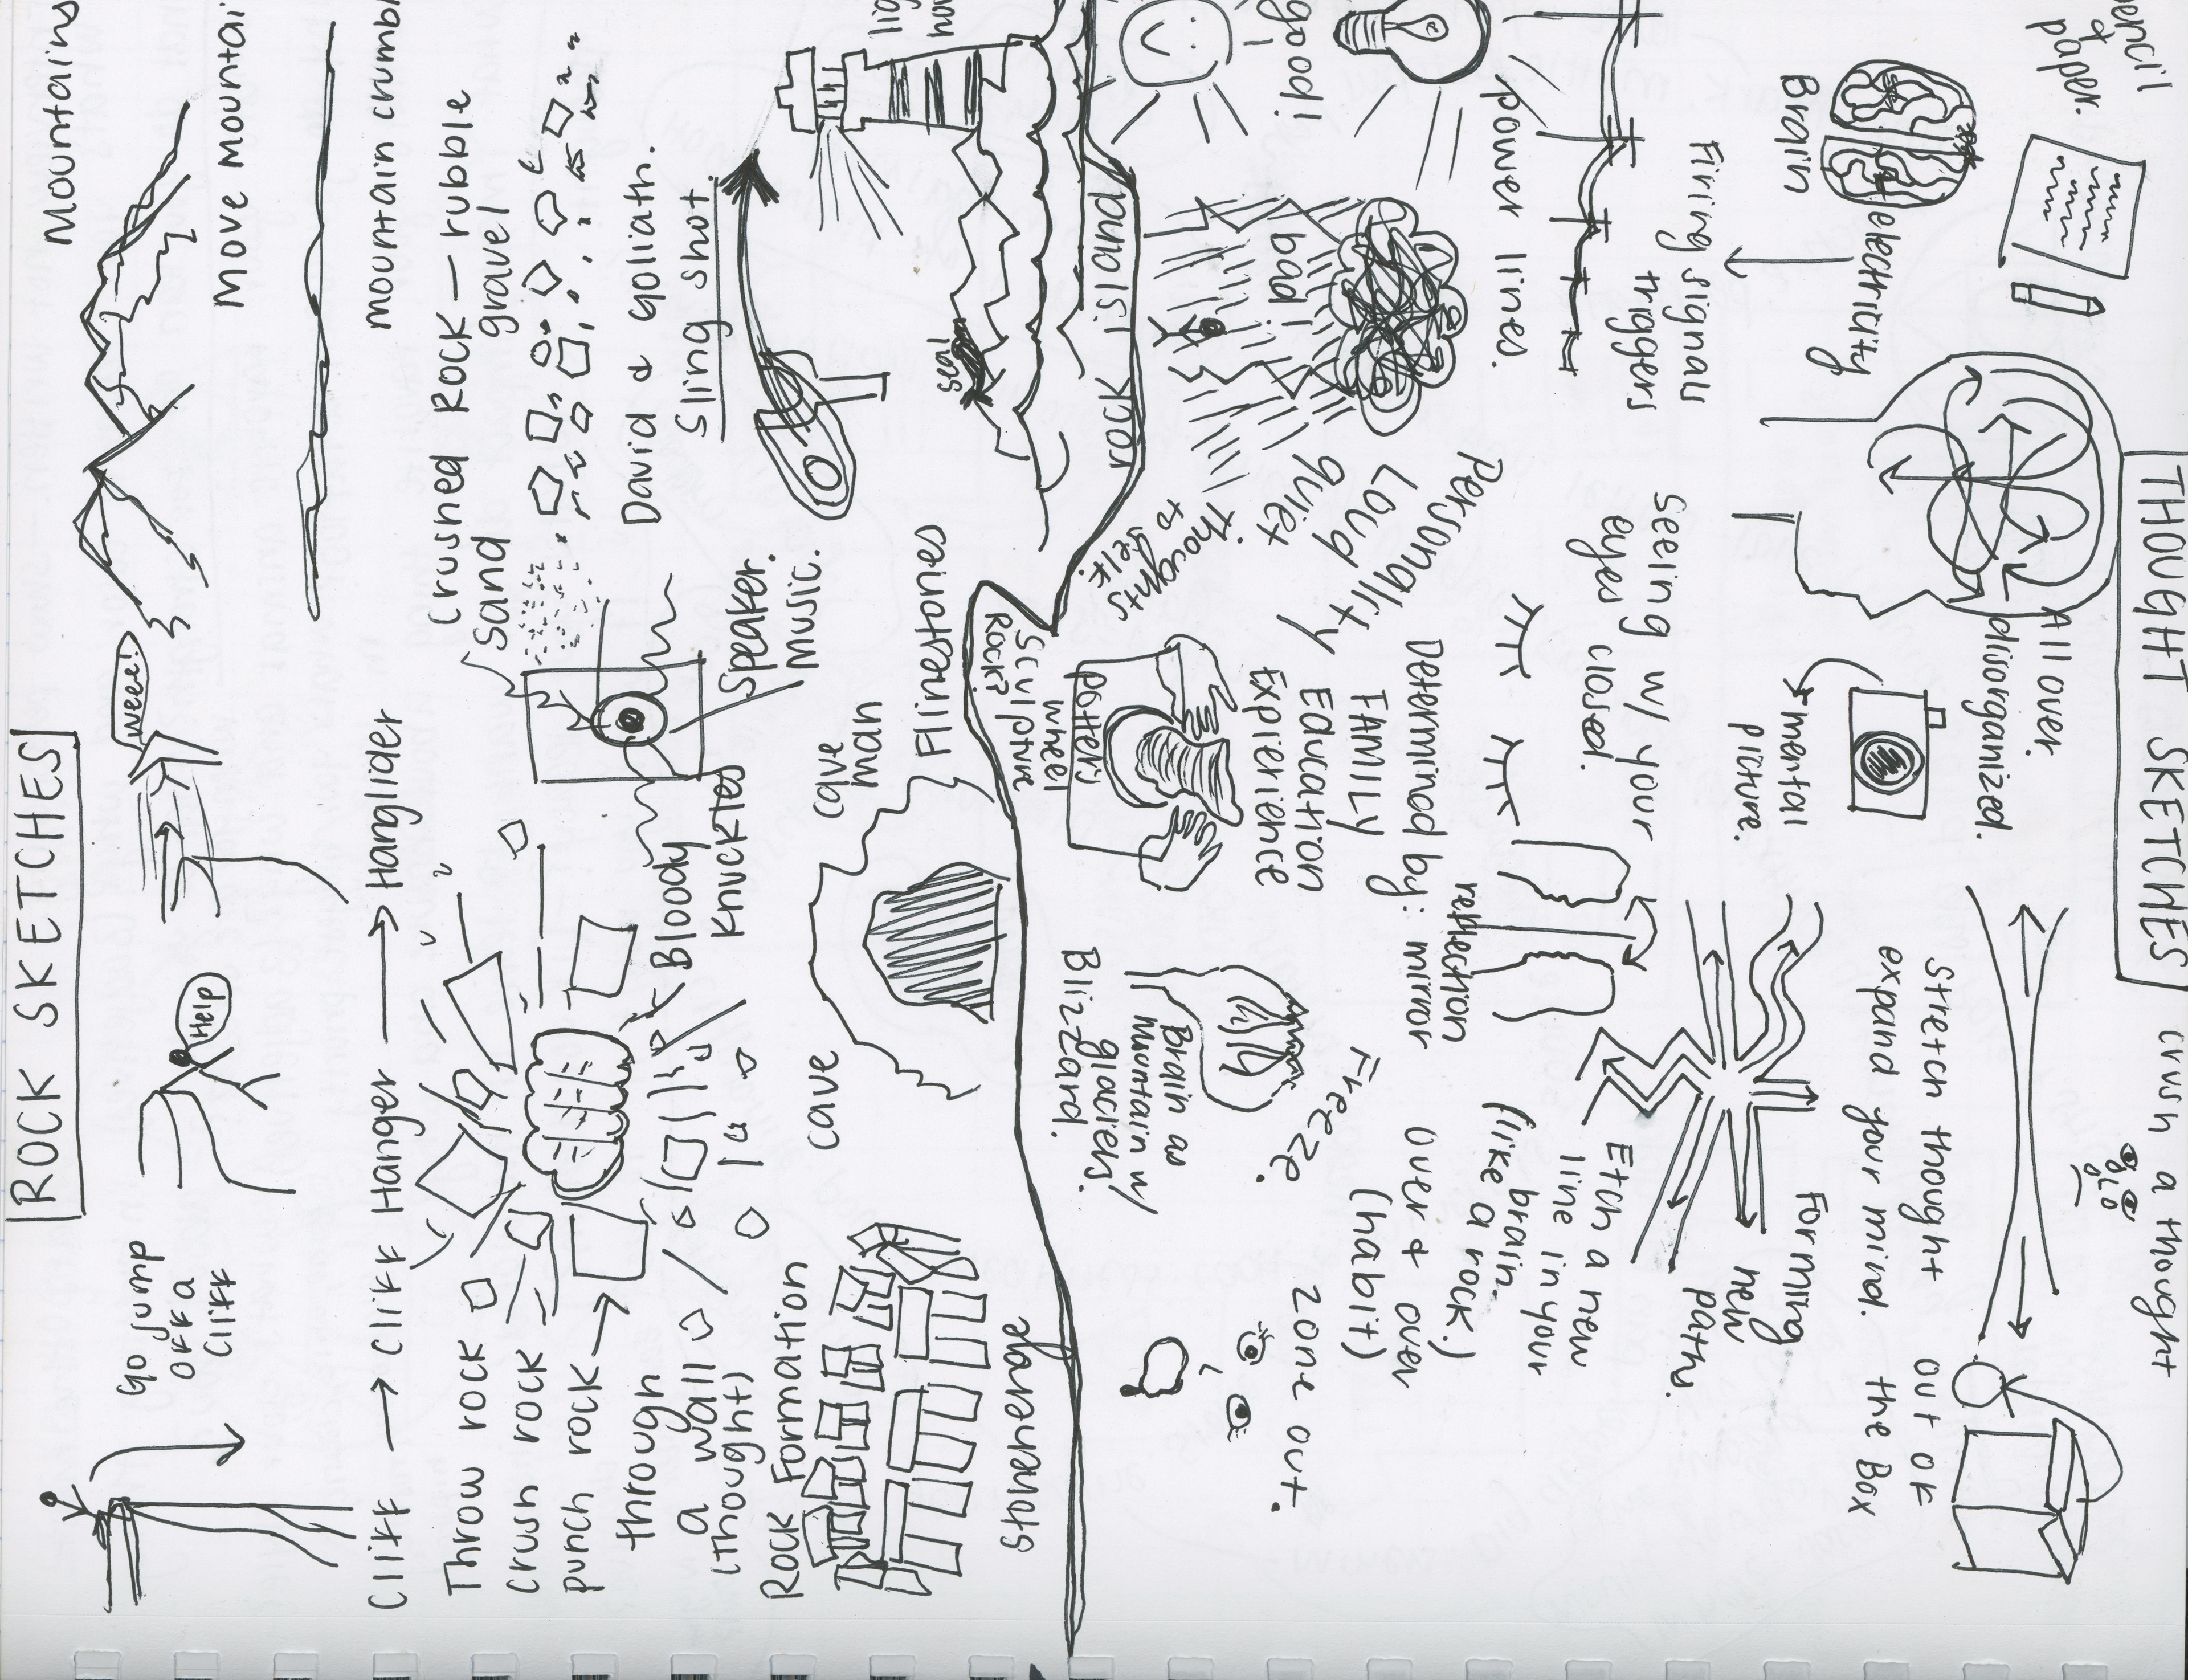 ROCK SKETCHES
Go jump
off a
cliff
Help
Weee!
Mountains
Move mountai
Cliff → Cliff Hanger → Hanglider
mountain crumbl
Throw rock
crush rock
punch rock →
through
a wall
(thought)
Bloody
Knuckles
Crushed Rock - rubble
sand
gravel
Speaker.
music.
David & Goliath.
Sling shot.
Rock Formation
stonehenge
cave
cave
man
Flinestones
seal
rock island
Sculpture
Rock?
THOUGHT SKETCHES
pencil
&
paper.
Brain
electricity
Firing signals
triggers
power lines.
good!
bad!
All over.
disorganized.
mental
picture.
Seeing w/ your
eyes closed.
Personality
Loud
quiet
Thoughts
to
self.
Determined by:
FAMILY
Education
Experience
potters
wheel
mirror
reflection
crush a thought
Stretch thought
expand your mind.
out of
the Box
Forming
new
paths.
Etch a new
line in your
brain.
(like a rock.)
over & over
(habit)
Freeze.
zone out.
Brain as
Mountain w/
glaciers.
Blizzard.